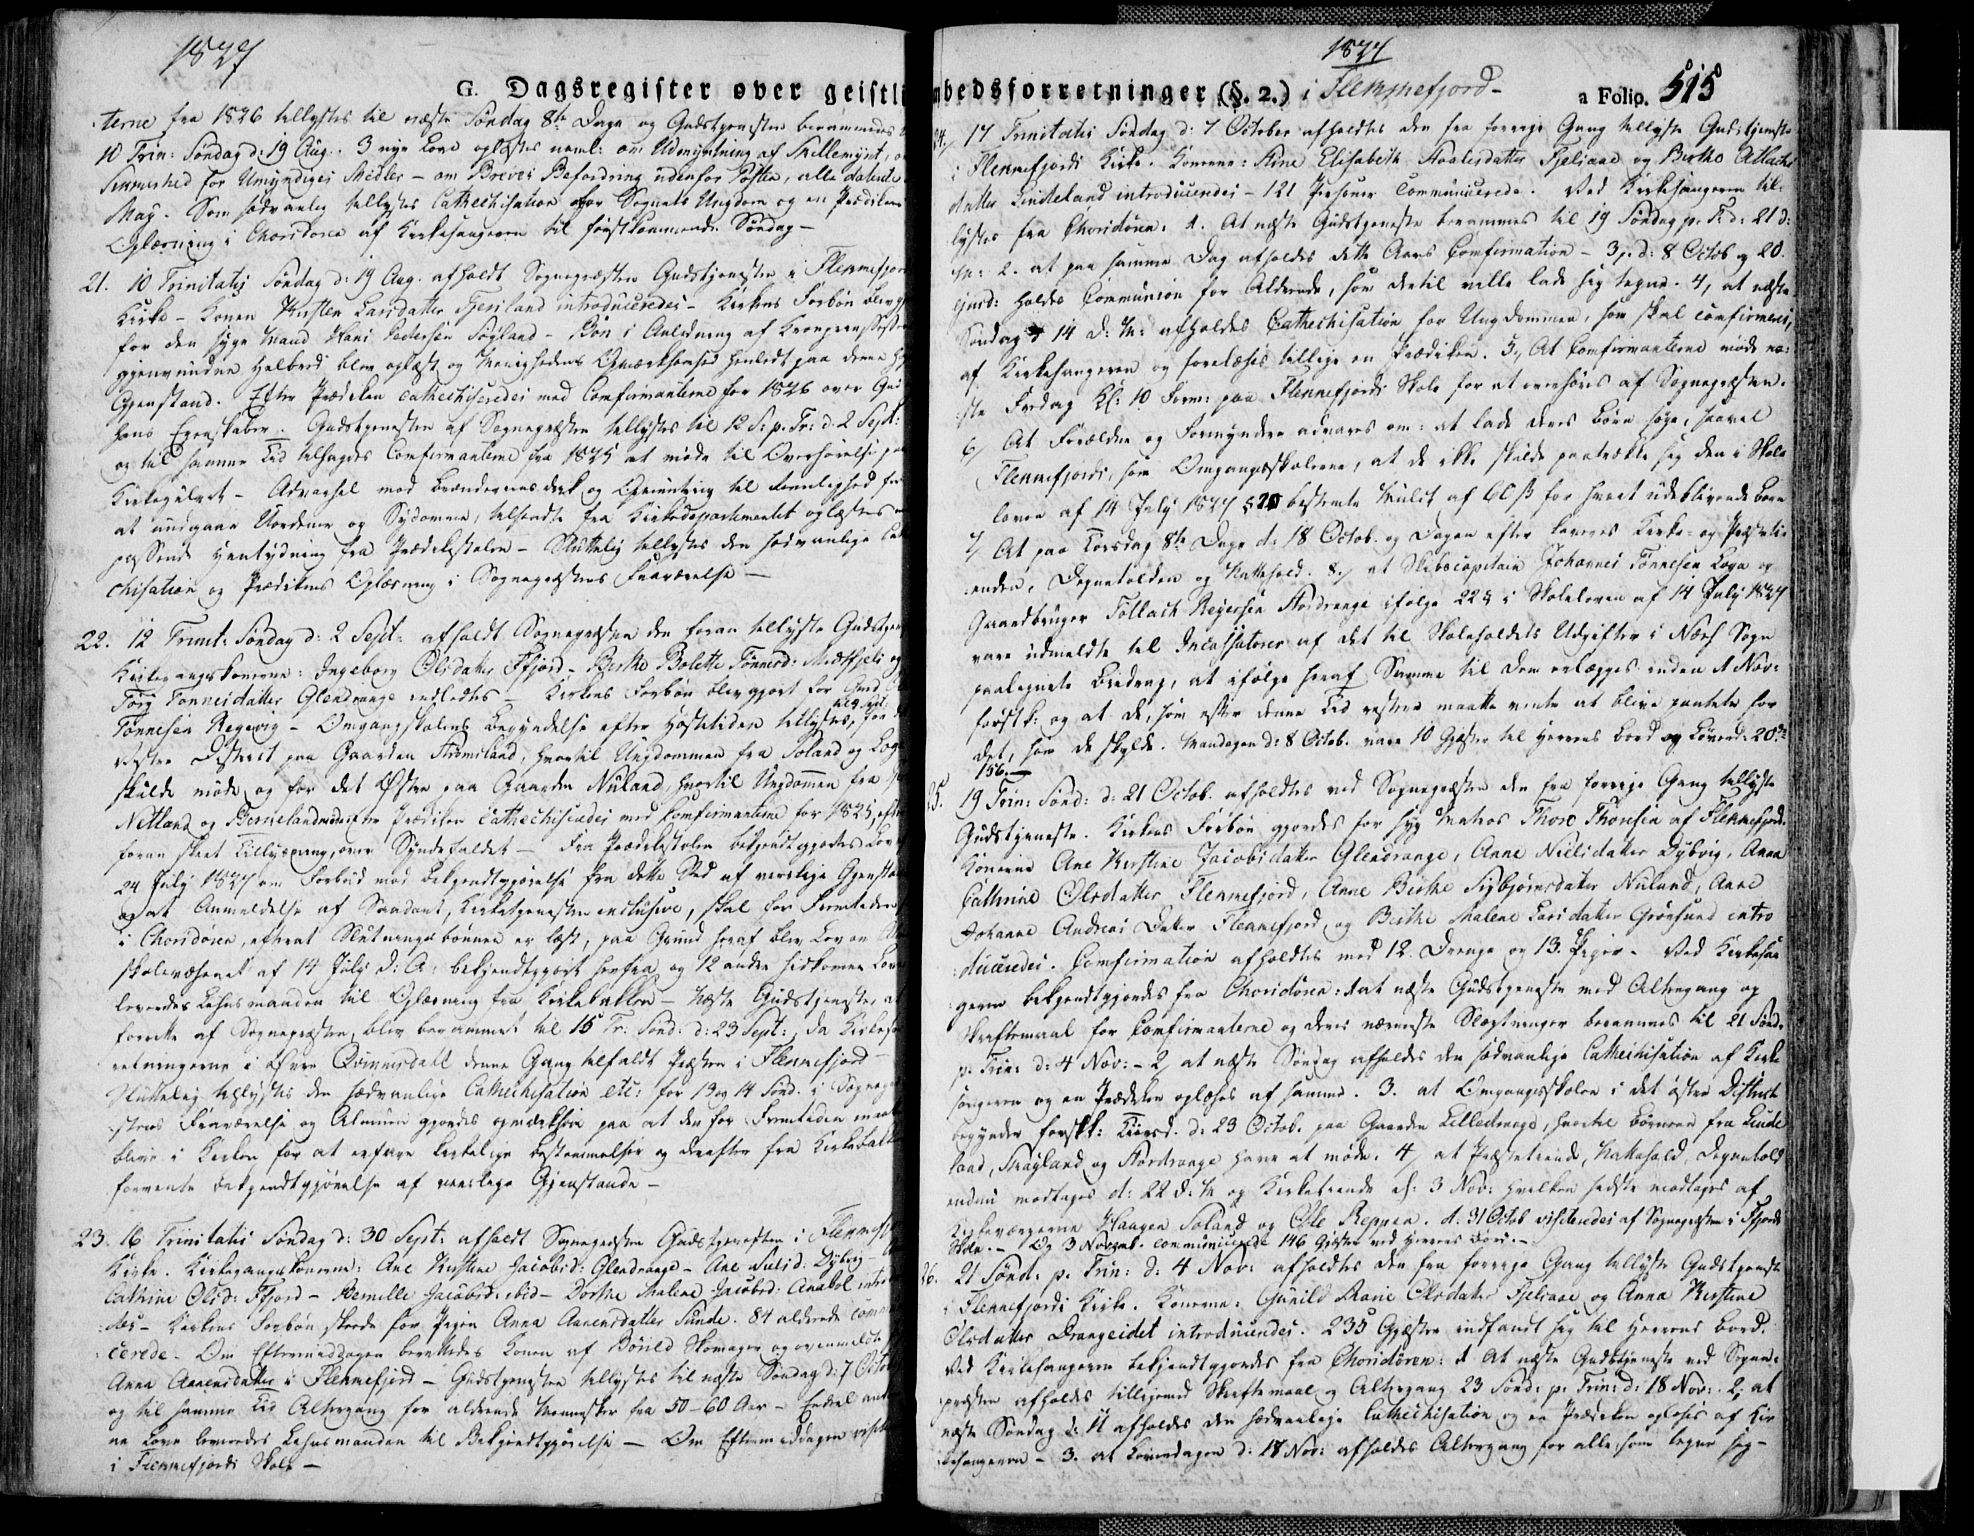 1827
G. Dagsregister over geistli
terne fra 1826 tillystes til næste Søndag 8te Dage og Gudstjenesten berammedes
10 Trin: Søndag d: 19 Aug. 3 nye Love oplæstes neml: om Udmyntning af Skillemynt,
Sikkerhed for Umyndiges Midler – om Breves Befordring udenfor Posten, alle daterede
May. Som sædvanlig tillystes Cathechisation for Sognets Ungdom og en Prædikens
Oplæsning i Chorsdøren af Kirkesangeren til førstkommende Søndag –
21. 10 Trinitatis Søndag d: 19 Aug. afholdt Sognepræsten Gudstjenesten i Flekkefjord
Kirke – Konen Kirsten Larsdatter Fjeseland introduceredes – Kirkens Forbøn blev
for den syge Mand Hans Pedersen Søyland – Bøn i Anledning af Kronprindsessens
gjenvundne Helbred blev oplæst og Menighedens Opmærksomhed henledt paa denne
Gjenstand. Efter Prædiken cathechiseredes med Confirmanterne for 1826 over Guds
hans Egenskaber. Gudstjenesten af Sognepræsten tillystes til 12 S: p. Tr: d: 2 Sept:
og til samme Tid tilsagdes Confirmanterne fra 1825 at møde til Overhørelse paa
Kirkegulvet – Advarsel mod Brændeviinsdrik og Opmuntring til Reenlighed for
at undgaae Uordener og Sygdomme, tilsendte fra Kirkedepartementet oplæstes
passende Hentydning fra Prædikestolen – Sluttelig tillystes den sædvanlige
chisation og Prædikens Oplæsning i Sognepræstens Fraværelse –
22. 12 Trinit: Søndag d: 2 Sept: afholdt Sognepræsten den foran tillyste Gudstjen
Kirkegangskonerne: Ingeborg Olsdatter Ffjord – Berthe Bolette Tønnesd:
Torg Tønnesdatter Glendrange indledtes – Kirkens Forbøn blev gjort for
Tønnesen Regevig – Omgangsskolens Begyndelse efter Høsttiden tillystes, for
vestre District paa Gaarden Strømsland, hvortil Ungdommen fra Soland og Loge
skulde møde og for det Østre paa Gaarden Nuland, hvortil Ungdommen fra
Netland og Prædiken cathechiseredes med Confirmanterne for 1825, efter
foran skeet Tillysning, over Syndefaldet – Fra Prædikestolen bekjendtgjordes Lov
24 July 1827 om Forbud mod Bekjendtgjørelse fra dette Sted af verdslige Gjenstande
og at Anmeldelse af Saadant, Kirketjenesten inclusive, skal for Fremtiden
i Chorsdøren, efterat Slutningsbønnen er læst, paa Grund heraf blev Lov om
skolevæsenet af 14 July d: A: bekjendtgjort herfra og 12 andre hidkomne Love
leveredes Lehnsmanden til Oplæsning fra Kirkebakken – Næste Gudstjeneste
forrette af Sognepræsten blev berammet til 15 Tr: Sønd: d: 23 Sept:, da Kirkefor
retningerne i Øvre Qvinnesdall denne Gang tilfaldt Præsten i Flekkefjord –
Sluttelig tillystes den sædvanlige Cathechisation etc: for 13 og 14 Sønd. i Sognepræ
stens Fraværelse og Almuen gjordes opmærksom paa at den for Fremtiden maatte
blive i Kirken for at erfare kirkelige Bestemmelser og derefter fra Kirkebakken
forvente Bekjendtgjørelse af verdslige Gjenstande –
23. 16 Trinitatis Søndag d: 30 Sept: afholdt Sognepræsten Gudstjenesten i Flekkefjord
Kirke. Kirkegangskonerne: Ane Kirstine Jacobsd: Glendrange – Ane Nielsd: Dybvig –
Cathrine Olsd: Ffjord – Pernille Jacobsd: ibid – Dorthe Malene Jacobsd: Anabel intro
des – Kirkens Forbøn skeede for Pigen Anna Aanensdatter Sunde. 84 alderede commu
cerede. Om Eftermiddagen berettedes Konen af Skomager og ovenmeldte
Anna Aanensdatter i Flekkefjord – Gudstjenesten tillystes til næste Søndag d: 7 Octob
og til samme Tid Altergang for aldrende Mennesker fra 50–60 Aar –
ne Love leveredes Lehnsmanden til Bekjendtgjørelse – Om Eftermiddagen
i Flekkefjords Skole –
1827
hedsforretninger (§. 2.) i Flekkefjord –
a Folio. 515
24, 17 Trinitatis Søndag d: 7 October afholdtes den fra forrige Gang tillyste Gudstjeneste
i Flekkefjords Kirke. Konerne: Stine Elisabeth Fjeliaae og Berthe Atlachs
datter introduceredes – 121 Personer communicerede. Ved Kirkesangeren til-
lystes fra Chorsdøren: 1. At næste Gudstjeneste berammes til 19 Søndag p. Tr. d: 21 d:
M: 2. at paa samme Dag afholdes dette Aars Confirmation – 3, d: 8 Octob og 20.
ejusd: holdes Communion for Alderede, som dertil ville lade sig tegne. 4, at næste
Søndag 14 d: M: afholdes Cathechisation for Ungdommen, som skal confirmeres,
af Kirkesangeren og forelæses tillige en Prædiken. 5, At Confirmanterne møde næ-
ste Fredag Kl: 10 Form: paa Flekkefjords Skole for at overhøres af Sognepræsten.
6, At Forældre og Formyndere advares om: at lade deres Børn søge, saavel
Flekkefjords, som Omgangsskolerne, at de ikke skulde paatrække sig den i Skole
loven af 14 July 1827 § 20 bestemte Mulct af 60 ß for hvert udeblivende Barn
7, At paa Torsdag 8te Dage d: 18 Octob. og Dagen efter leveres Kirke- og Præstetie
ender, Degnetolden og Natthold. 8, at Skibscapitain Johannes Tønnesen Loga og
Gaardbruger Tollach Reyersen Stordrange ifølge 22 § i Skoleloven af 14 July 1827
vare udmeldte til Incassatorer af det til Skoleholdets Udgifter i Næs Sogn
paalignede Bidrag, at ifølge heraf Summe til dem erlægges inden 1 Nov:
først k: og at de, som efter denne Tid restere maatte vente at blive pantet for
det, som de skylde. Mandagen d: 8 Octob. vare 10 Gjæster til Herrens Bord og Løverd: 20de
156. –
25. 19 Trin: Sønd: d: 21 Octob. afholdtes ved Sognepræsten den fra forrige Gang tillyste
Gudstjeneste. Kirkens Forbøn gjordes for syg Matros Thore Thorsen af Flekkefjord.
Konerne Ane Kirstine Jacobsdatter Glendrange, Anne Nielsdatter Dybvig, Anna
Cathrine Olsdatter Flekkefjord, Anne Berthe Sigbjørnsdatter Nuland, Anne
Johanne Andreas Datter Flekkefjord og Berthe Malene Larsdatter Grøvsund intro
duceredes. Confirmation afholdtes med 12 Drenge og 13 Piger. Ved Kirkesan
geren bekjendtgjordes fra Chorsdøren: 1 at næste Gudstjeneste med Altergang og
Skriftemaal for Confirmanterne og deres nærmeste Slægtninger berammes til 21 Sønd:
p. Trin: d: 4 Nov: – 2, at næste Søndag afholdes den sædvanlige Cathechisation af Kirke
sangeren og en Prædiken oplæses af samme. 3. at Omgangsskolen i det østre District
begynder førstk: Tiirsd. d: 23 Octob. paa Gaarden Lilledrange, hvortil Børnene fra Linde
land, Skøyland og Stordrange have at møde. 4, at Præstetiende, Natthold, Degnetold
endnu modtages d: 22 d: M og Kirketiende d: 3 Nov: hvilken sidste modtages af
Kirkeværgerne Haagen Soland og Ole Reppen. d. 31 Octob visiteredes af Sognepræsten i Ffjords
Skole. – Og 3 Novemb. communicerede 146 Gjæster ved Herrens Bord. –
26. 21 Sønd: p. Trin: d: 4 Nov: afholdtes den fra forrige Gang tillyste Gudstjeneste
i Flekkefjords Kirke. Konerne: Gunild Marie Olsdatter Fjeliaae og Anna Kirstine
Olsdatter Drangeidet introduceredes. 235 Gjæster indfandt sig til Herrens Bord.
Ved Kirkesangeren bekjendtgjordes fra Chorsdøren: 1 At næste Gudstjeneste ved Sogne-
præsten afholdes tilligemed Skriftemaal og Altergang 23 Sønd: p. Trin: d: 18 Nov: 2, at
næste Søndag d: 11 afholdes den sædvanlige Cathechisation og en Prædiken oplæses af Kir
kesangeren – 3. at Løverdagen d: 18 Nov: afholdes Altergang for alle som tegne sig –